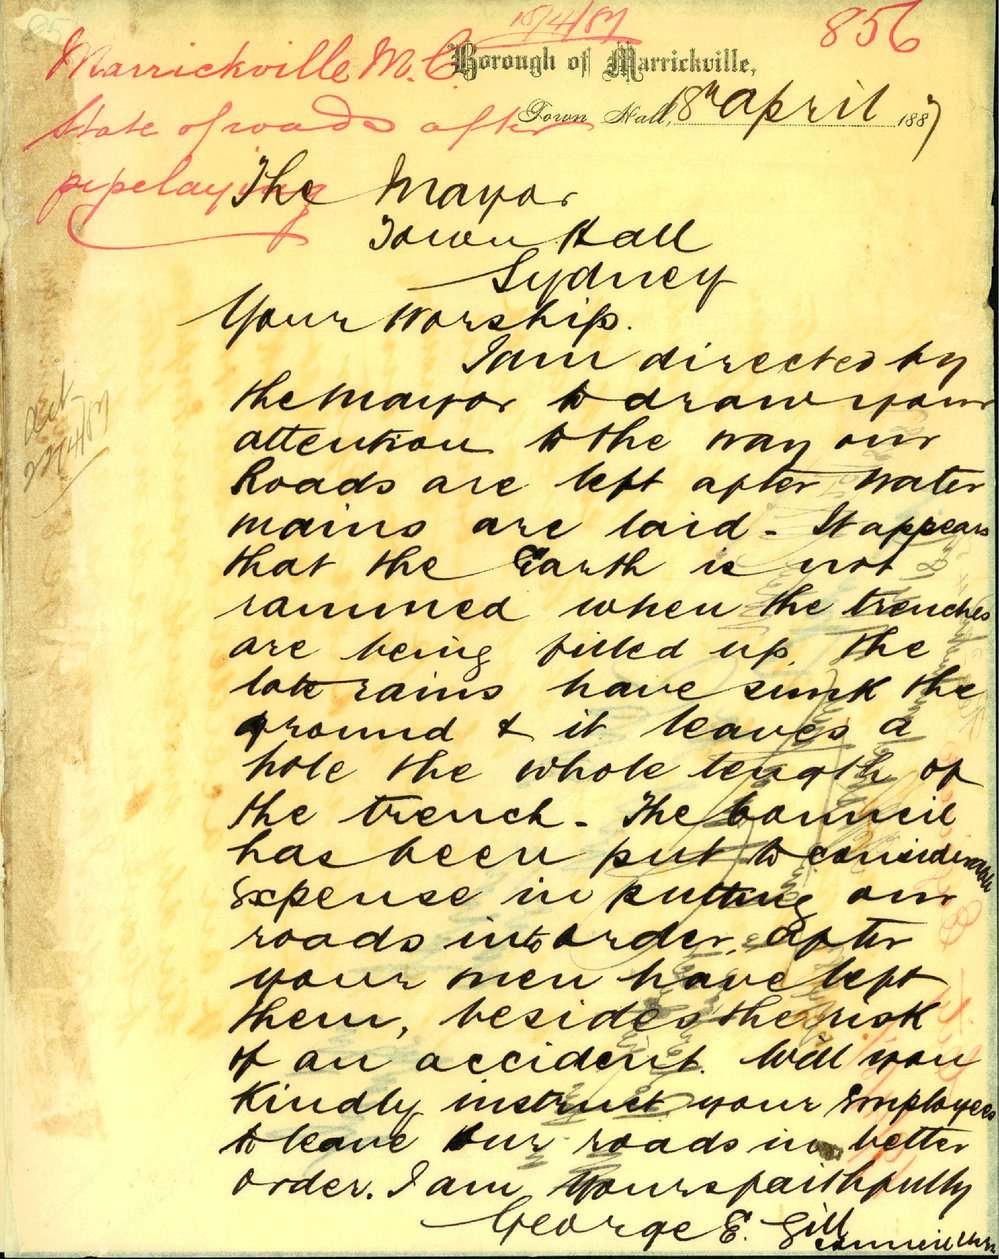 856
Marrickville M.C.
State of roads after
pipelaying
Borough of Marrickville,
Town Hall, 18th April 1887
The Mayor
Town Hall
Sydney
Your Worship.
I am directed by
the Mayor to draw your
attention to the way our
Roads are left after Water
mains are laid - It appears
that the Earth is not
rammed when the trenches
are being filled up, the
late rains have sunk the
ground & it leaves a
hole the whole length of
the trench - The Council
has been put to considerable
Expense in putting our
roads into order, after
your men have left
them, besides the risk
of an accident. Will you
Kindly instruct your Employees
to leave our roads in better
order. I am Yours faithfully
George E. Gill
Council Clerk